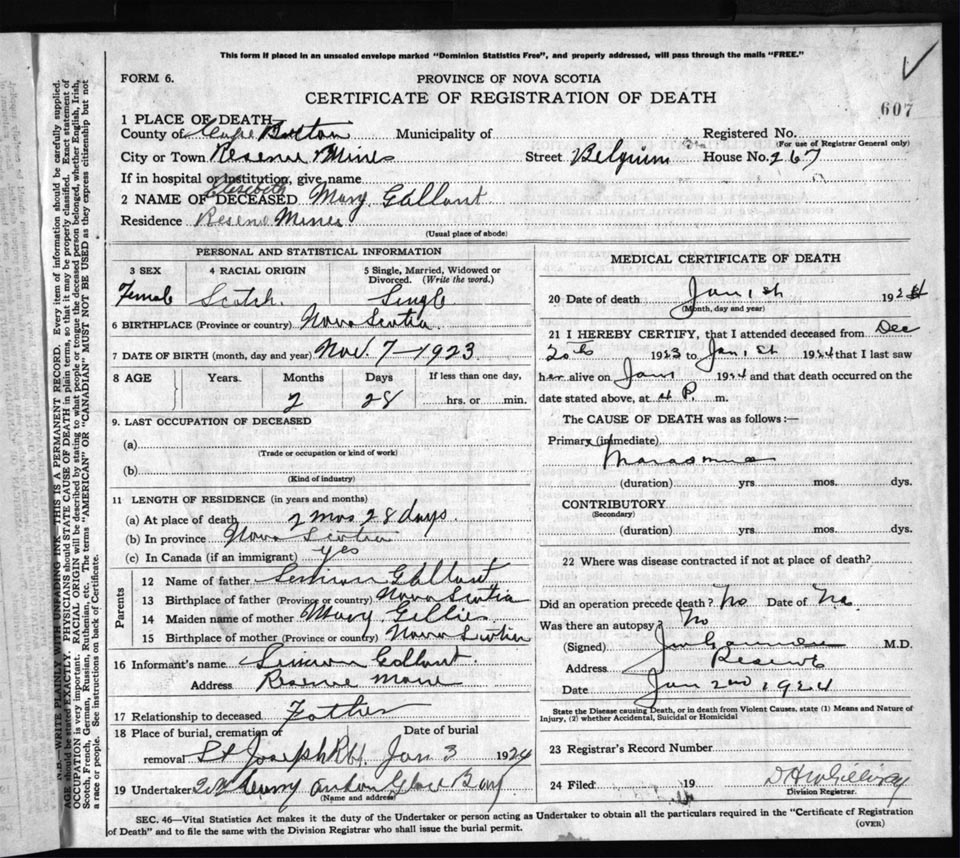 This form if placed in an unsealed envelope marked "Dominion Statistics Free", and properly addressed, will pass through the mails "FREE."
FORM 6.
PROVINCE OF NOVA SCOTIA
CERTIFICATE OF REGISTRATION OF DEATH
607
1 PLACE OF DEATH
County of Cape Breton Municipality of Registered No.
(For use of Registrar General only)
City or Town Reserve Mines Street Belgium House No. 267
If in hospital or institution, give name
Elizabeth
2 NAME OF DECEASED Mary Gallant
Residence Reserve Mines
(Usual place of abode)
PERSONAL AND STATISTICAL INFORMATION
3 SEX 4 RACIAL ORIGIN 5 Single, Married, Widowed or Divorced. (Write the word.)
Female Scotch Single
6 BIRTHPLACE (Province or country) Nova Scotia
7 DATE OF BIRTH (month, day and year) Nov. 7 - 1923
8 AGE Years. Months Days If less than one day,
2 28 hrs. or min.
9. LAST OCCUPATION OF DECEASED
(a)
(Trade or occupation or kind of work)
(b)
(Kind of industry)
11 LENGTH OF RESIDENCE (in years and months)
(a) At place of death 2 mos 28 days.
(b) In province Nova Scotia
(c) In Canada (if an immigrant) yes
Parents
12 Name of father Simon Gallant
13 Birthplace of father (Province or country) Nova Scotia
14 Maiden name of mother Mary Gillis
15 Birthplace of mother (Province or country) Nova Scotia
16 Informant's name Simon Gallant
Address Reserve Mine
17 Relationship to deceased Father
18 Place of burial, cremation or Date of burial
removal St Joseph Jan 3 1924
19 Undertaker Glace Bay
(Name and address)
MEDICAL CERTIFICATE OF DEATH
20 Date of death Jan, 1st 192
(Month, day and year)
21 I HEREBY CERTIFY, that I attended deceased from Dec
20th 1923 to Jan, 1st 1924 that I last saw
her alive on Jan 1 1924 and that death occurred on the
date stated above, at 4 P. m.
The CAUSE OF DEATH was as follows:—
Primary (immediate)
Marasmus
(duration) yrs. mos. dys.
CONTRIBUTORY
(Secondary)
(duration) yrs. mos. dys.
22 Where was disease contracted if not at place of death?
Did an operation precede death? No Date of No
Was there an autopsy? No
(Signed) M.D.
Address Reserve
Date Jan 2nd, 1924
State the Disease causing Death, or in death from Violent Causes, state (1) Means and Nature of
Injury, (2) whether Accidental, Suicidal or Homicidal
23 Registrar's Record Number
24 Filed 19 D H McGillivray
Division Registrar.
SEC. 46—Vital Statistics Act makes it the duty of the Undertaker or person acting as Undertaker to obtain all the particulars required in the "Certificate of Registration
of Death" and to file the same with the Division Registrar who shall issue the burial permit.
(OVER)
N.B.—WRITE PLAINLY WITH UNFADING INK—THIS IS A PERMANENT RECORD. Every item of information should be carefully supplied.
AGE should be stated EXACTLY. PHYSICIANS should STATE CAUSE OF DEATH in plain terms, so that it may be properly classified. Exact statement of
OCCUPATION is very important. RACIAL ORIGIN will be described by stating to what people or tongue the deceased person belonged, whether English, Irish,
Scotch, French, German, Russian, Ruthenian, etc. The terms "AMERICAN" OR "CANADIAN" MUST NOT BE USED as they express citizenship but not
a race or people. See instructions on back of Certificate.